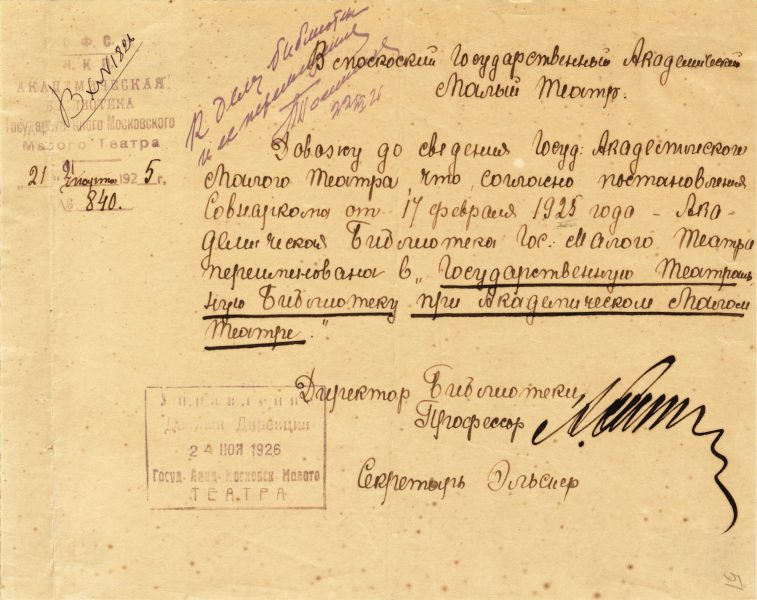 Р.С.Ф.С.Р.
Н.К.П.
АКАДЕМИЧЕСКАЯ
БИБЛИОТЕКА
Государственного Московского
Малого Театра
21 1925 г.
№ 840.
К делу библиотеки
и ее
В Московский Государственный Академический
Малый Театр.
Довожу до сведения Госуд. Академического
Малого Театра, что, согласно постановления
Совнаркома от 17 февраля 1925 года – Ака-
демическая Библиотека Гос. Малого Театра
переименована в „Государственную Театраль-
ную Библиотеку при Академическом Малом
Театре."
Директор Библиотеки,
Профессор
Секретарь
Управление
Дирекция
24 НОЯ 1926
Госуд. Акад. Московск. Малого
ТЕАТРА
51